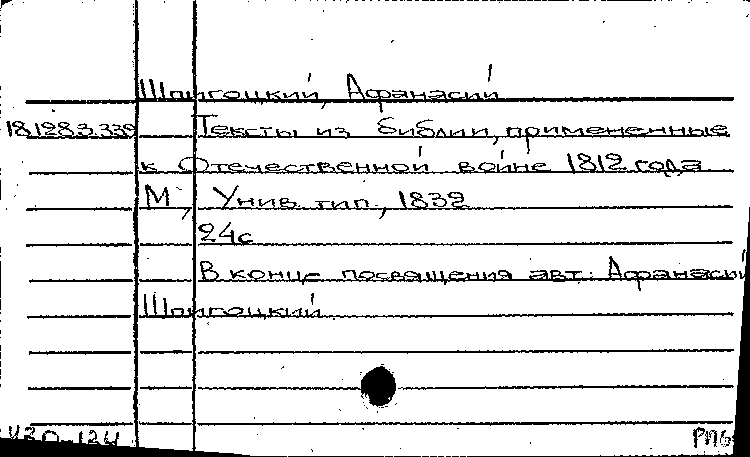 Шпигоцкий, Афанасий
18.128.3.339 Тексты из библии, примененные
к Отечественной войне 1812 года
М., Унив. тип., 1839
24с
В конце посвящения авт.: Афанасий
Шпигоцкий